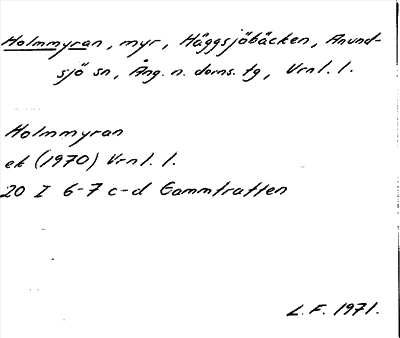 Holmmyran, myr, Häggsjöbäcken, Anund-
sjö sn, Ång. n. doms. tg, Vrnl. l.
Holmmyran
ek (1970) Vrnl. l.
20 I 6-7 c-d Gammtratten
L.F. 1971.